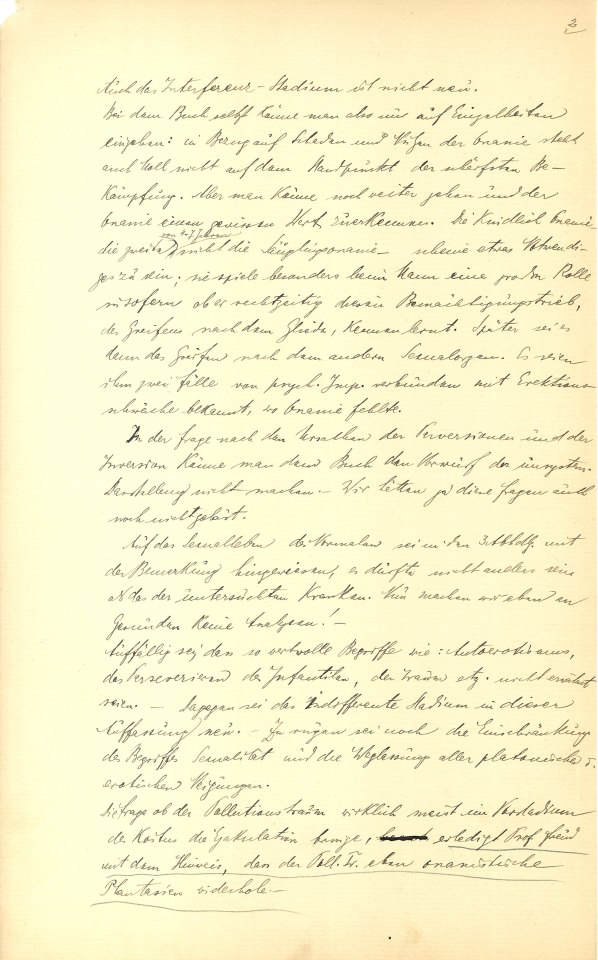 2
Auch das Interferenz-Stadium ist nicht neu.
Bei dem Buch selbst könne man also nur auf Einzelheiten
eingehen: in Bezug auf Schaden und Nutzen der Onanie steht
auch Moll nicht auf dem Standpunkt der schärfsten Be-
kämpfung. Aber man könne noch weiter gehen und der
Onanie einen gewissen Wert zuerkennen. Die kindliche Onanie
von 4-7 Jahren
die zweite, nicht die Säuglingsonanie – scheine etwas Notwendi-
ges zu sein; sie spiele besonders beim Mann eine große Rolle
insofern ob er rechtzeitig diesen Bemächtigungstrieb,
des Greifens nach dem Gliede, kennen lernt. Später sei es
dann das Greifen nach dem andern Sexualorgan. Es seien
ihm zwei Fälle von psych. Imp. verbunden mit Erektions-
schwäche bekannt, wo Onanie fehlte.
In der Frage nach den Ursachen der Perversionen und der
Inversion könne man dem Buch den Vorwurf der unsystem.
Darstellung nicht machen. – Wir hätten ja diese Fragen auch
noch nicht gelöst.
Auf das Sexualleben des Normalen sei in den 3 Abhdlg. mit
der Bemerkung hingewiesen, es dürfte nicht anders sein
als das der untersuchten Kranken. Nun machen wir eben an
Gesunden keine Analysen! –
Auffällig sei, dass so wertvolle Begriffe wie: Autoerotismus,
das Perseverieren des Infantilen, der Traum etz. nicht erwähnt
seien. – Dagegen sei das Indifferente Stadium in dieser
Auffassung neu. – Zu rügen sei noch die Einschränkung
des Begriffes Sexualität und die Weglassung aller platonischen
erotischen Neigungen.
Die Frage ob der Pollutionstraum wirklich meist im Vorstadium
des Koitus die Ejakulation bringe, erledigt Prof. Freud
mit dem Hinweis, dass der Poll. Tr. eben onanistische
Phantasien wiederhole. –